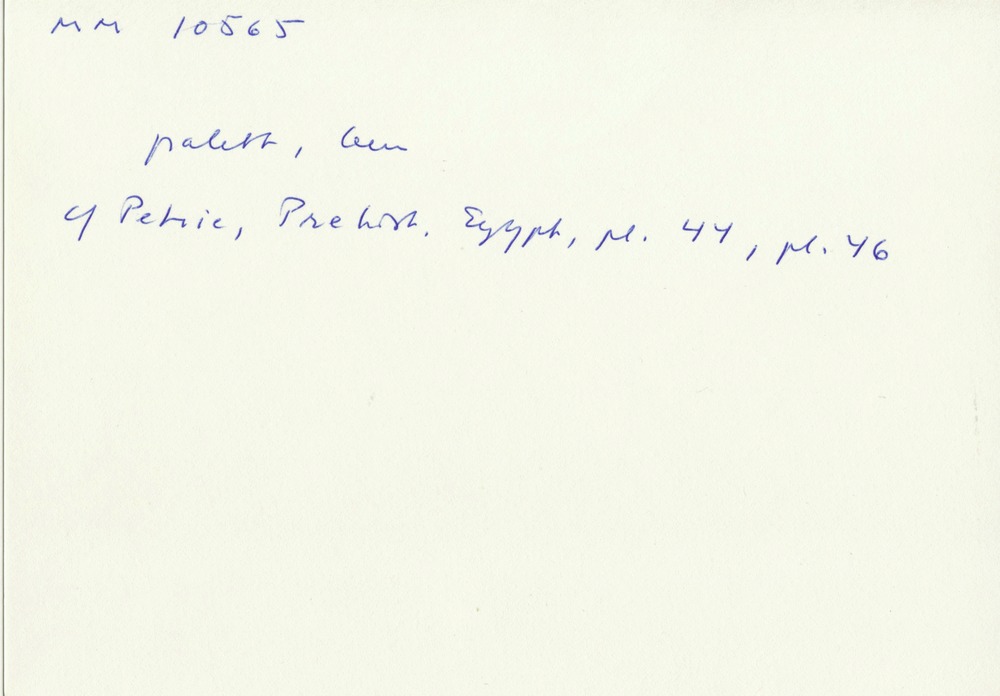 MM 10565
palett,
cf Petrie, Prehist. Egypt, pl. 44, pl. 46